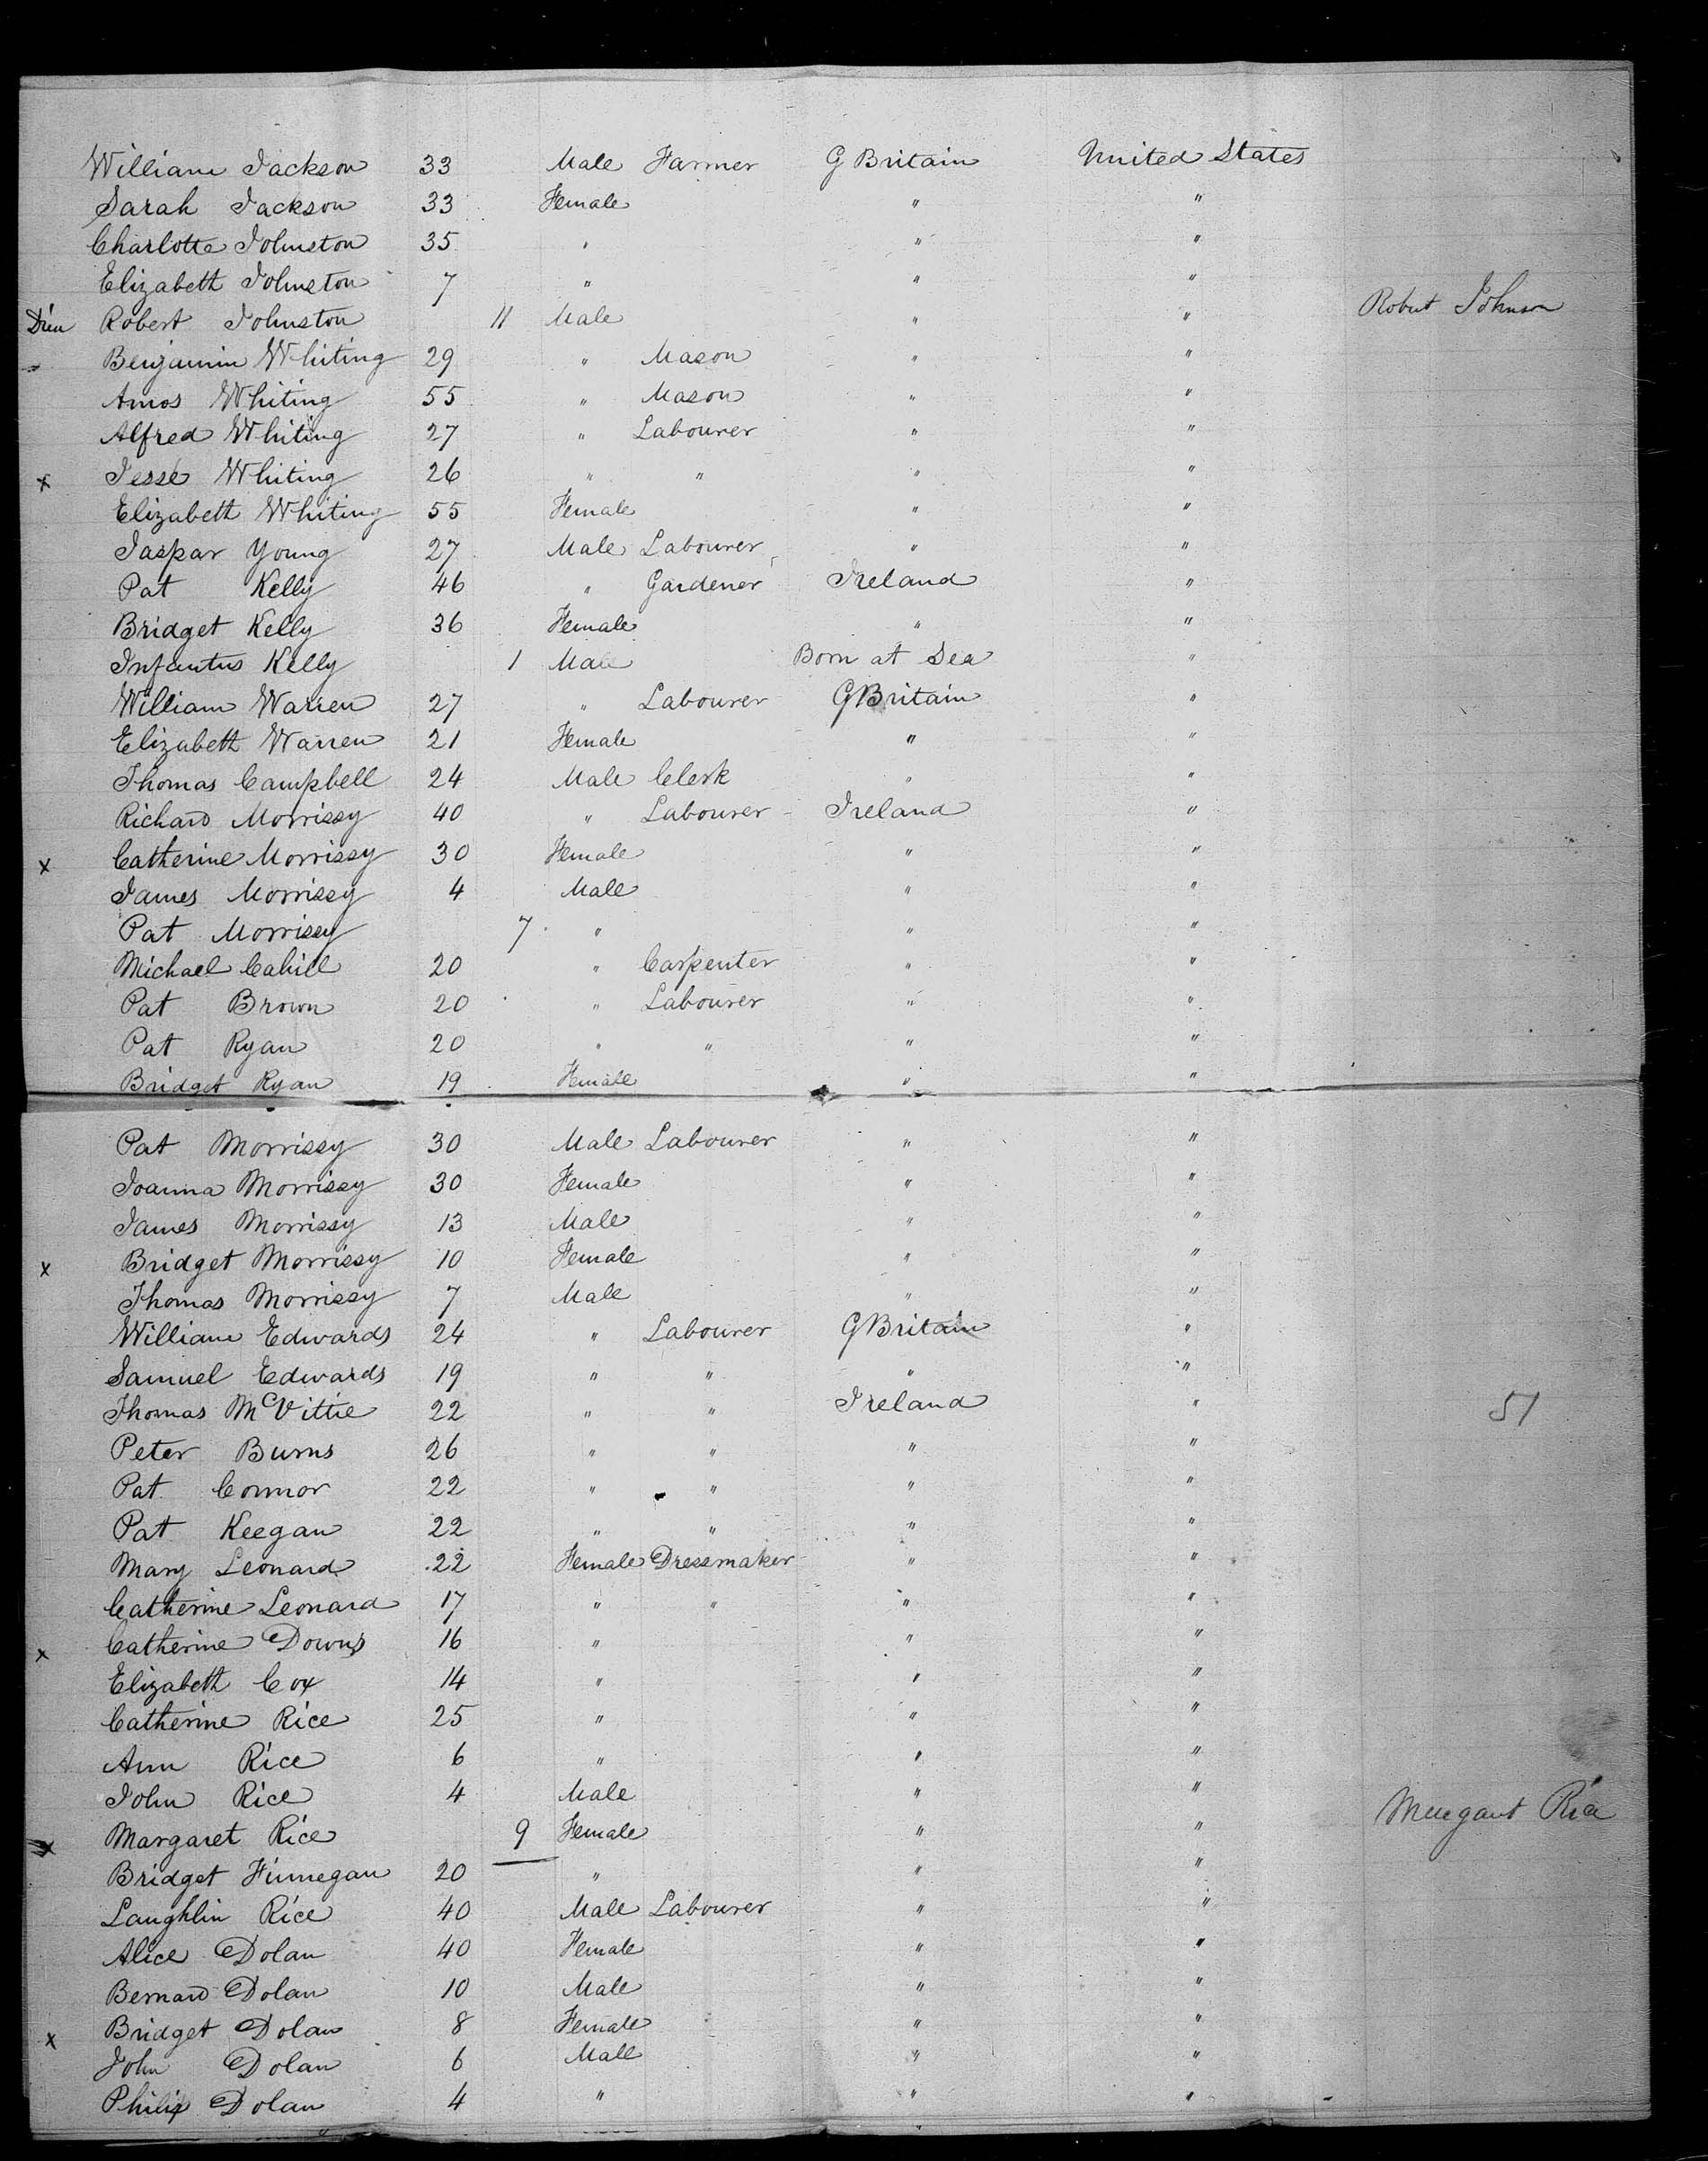 William Jackson 33 Male Farmer G Britain United States
Sarah Jackson 33 Female " "
Charlotte Johnston 35 " " "
Elizabeth Johnston 7 " " "
Robert Johnston 11 Male " " Robert Johnson
Benjamin Whiting 29 " Mason " "
Amos Whiting 55 " Mason " "
Alfred Whiting 27 " Labourer " "
x Jesse Whiting 26 " " " "
Elizabeth Whiting 55 Female " "
Jaspar Young 27 Male Labourer " "
Pat Kelly 46 " Gardener Ireland "
Bridget Kelly 36 Female " "
Infantus Kelly 1 Male Born at Sea "
William Warren 27 " Labourer G Britain "
Elizabeth Warren 21 Female " "
Thomas Campbell 24 Male Clerk " "
Richard Morrissy 40 " Labourer Ireland "
x Catherine Morrissy 30 Female " "
James Morrissy 4 Male " "
Pat Morrissy 7 " " "
Michael Cahill 20 " Carpenter " "
Pat Brown 20 " Labourer " "
Pat Ryan 20 " " " "
Bridget Ryan 19 Female " "
Pat Morrissy 30 Male Labourer " "
Joanna Morrissy 30 Female " "
James Morrissy 13 Male " "
x Bridget Morrissy 10 Female " "
Thomas Morrissy 7 Male " "
William Edwards 24 " Labourer G Britain "
Samuel Edwards 19 " " " "
Thomas McVittie 22 " " Ireland " 51
Peter Burns 26 " " " "
Pat Connor 22 " " " "
Pat Keegan 22 " " " "
Mary Leonard 22 Female Dressmaker " "
Catherine Leonard 17 " " " "
x Catherine Downs 16 " " "
Elizabeth Cox 14 " " "
Catherine Rice 25 " " "
Ann Rice 6 " " "
John Rice 4 Male " "
x Margaret Rice 9 Female " " Margaret Rice
Bridget Finnegan 20 " " "
Laughlin Rice 40 Male Labourer " "
Alice Dolan 40 Female " "
Bernard Dolan 10 Male " "
x Bridget Dolan 8 Female " "
John Dolan 6 Male " "
Philip Dolan 4 " " "